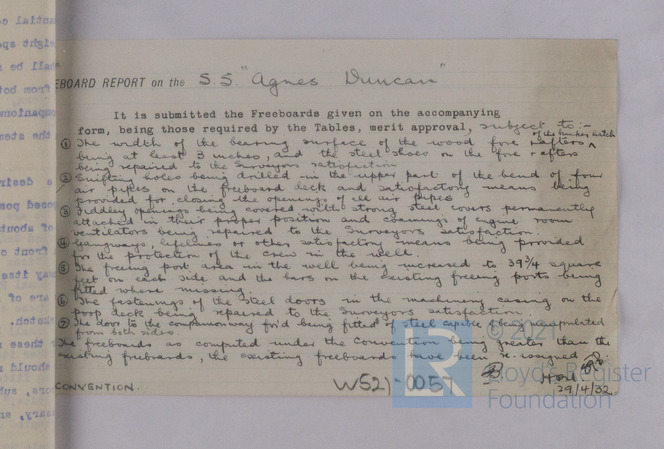 EBOARD REPORT on the S.S. "Agnes Duncan"
It is submitted the Freeboards given on the accompanying
form, being those required by the Tables, merit approval, subject to:-
① The width of the bearing surface of the wood fore & afters of the bunker hatch
being at least 3 inches, and the steel shoes on the fore & afters
being repaired to the Surveyors satisfaction
② Sniffling holes being drilled in the upper part of the bend of four
air pipes on the freeboard deck and satisfactory means being
provided for closing the openings of all air pipes
③ Fiddley openings being covered with strong steel covers permanently
attached in their proper position and coamings of engine room
ventilators being repaired to the Surveyors satisfaction.
④ Gangways, lifelines or other satisfactory means being provided
for the protection of the crew in the well.
⑤ The freeing port area in the well being increased to 39¾ square
feet on each side and the bars on the existing freeing ports being
fitted where missing.
⑥ The fastenings of the steel doors in the machinery casing on the
poop deck being repaired to the Surveyors satisfaction.
⑦ The door to the companionway for'd being fitted of steel capable of being manipulated
from both sides.
The freeboards as computed under the Convention being greater than the
existing freeboards, the existing freeboards have been re-assigned
CONVENTION.
W521-005
29/4/32
© 2021
Lloyd's Register
Foundation
antial
eight spe
hall be s
from bot
the stea
desir
posed pos
of about
front o
ay itse
are of
ketch.
these
should
ors, sub